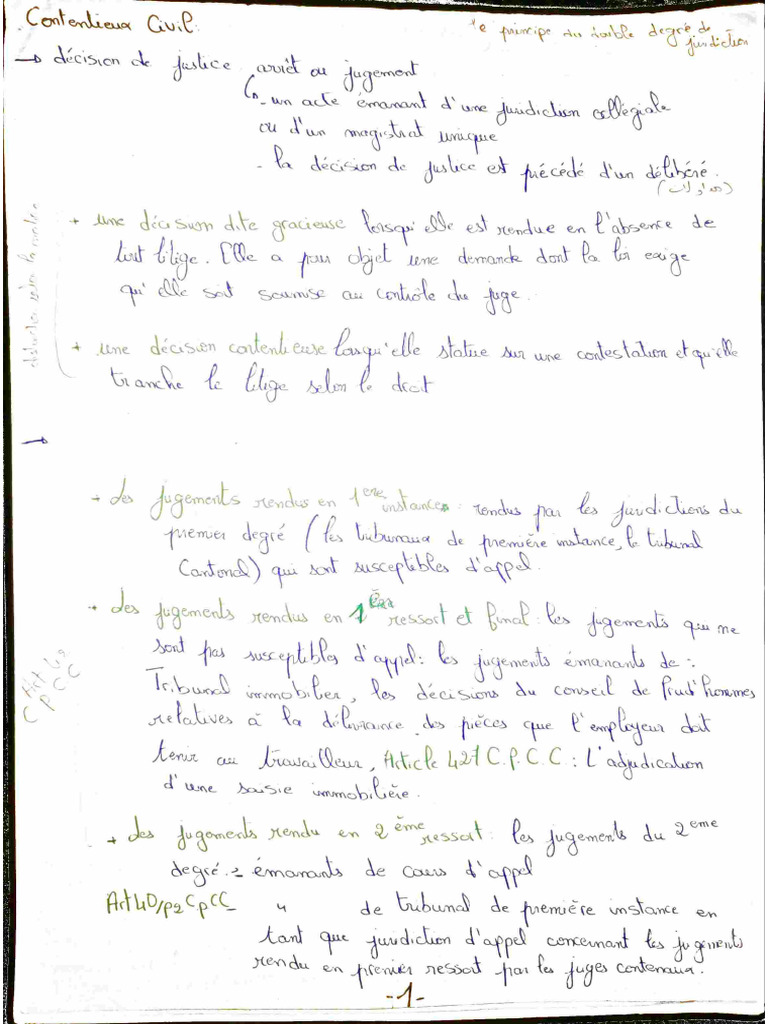 Contentieux Civil.
le principe du double degré de
juridiction
→ décision de justice arrêt ou jugement
- un acte émanant d'une juridiction collégiale
ou d'un magistrat unique
- la décision de justice est précédé d'un délibéré.
(مداولات)
+ une décision dite gracieuse lorsqu'elle est rendue en l'absence de
tout litige. Elle a pour objet une demande dont la loi exige
qu'elle soit soumise au contrôle du juge.
+ une décision contentieuse lorsqu'elle statue sur une contestation et qu'elle
tranche le litige selon le droit
→
+ des jugements rendus en 1ere instance : rendus par les juridictions du
premier degré (les tribunaux de première instance, le tribunal
Cantonal) qui sont susceptibles d'appel.
+ des jugements rendus en 1er ressort et final : les jugements que ne
sont pas susceptibles d'appel : les jugements émanants de :
Tribunal immobilier, les décisions du conseil de Prud'hommes
relatives à la délivrance des pièces que l'employeur doit
tenir au travailleur, Article 421 C.P.C.C : L'adjudication
d'une saisie immobilière.
Art 42
C P C C
+ des jugements rendu en 2ème ressort : les jugements du 2eme
degré : - émanants de cours d'appel
Art 40/p2 CpCC - " de tribunal de première instance en
tant que juridiction d'appel concernant les jugements
rendu en premier ressort par les juges contenaux.
-1-